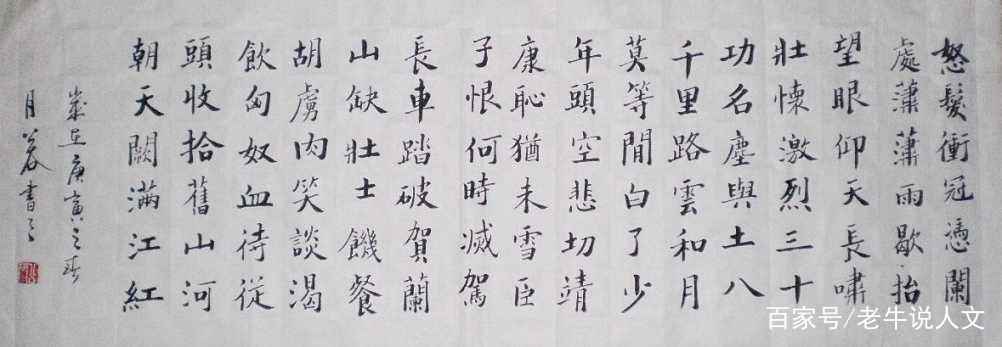 怒髮衝冠憑闌
處瀟瀟雨歇抬
望眼仰天長嘯
壯懷激烈三十
功名塵與土八
千里路雲和月
莫等閒白了少
年頭空悲切靖
康恥猶未雪臣
子恨何時滅駕
長車踏破賀蘭
山缺壯士饑餐
胡虜肉笑談渴
飲匈奴血待從
頭收拾舊山河
朝天闕滿江紅
歲在庚寅之春
月書之
百家号/老牛说人文